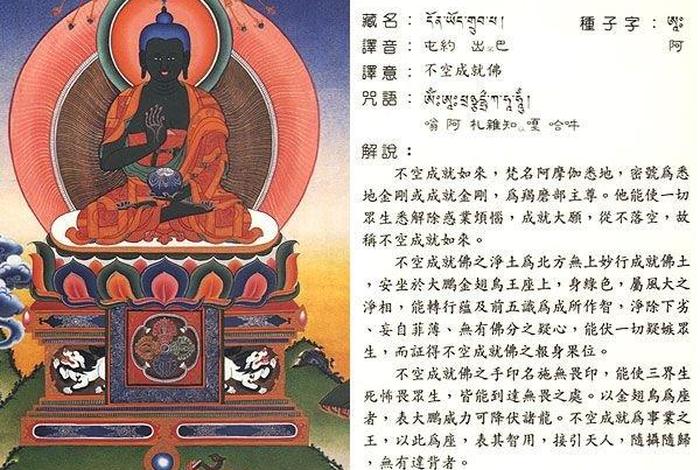 藏名：དོན་ཡོད་གྲུབ་པ། 種子字：ཨཱཿ
譯音：屯約 出巴 阿
譯意：不空成就佛
咒語：
嗡 阿 札雜知嘎 哈吽
解說：
不空成就如來，梵名阿摩伽悉地，密號為悉
地金剛或成就金剛，為羯磨部主尊。他能使一切
眾生悉解除惑業煩惱，成就大願，從不落空，故
稱不空成就如來。
不空成就佛之淨土為北方無上妙行成就佛土
，安坐於大鵬金翅鳥王座上，身綠色，屬風大之
淨相，能轉行蘊及前五識為成所作智，淨除下劣
、妄自菲薄、無有佛分之疑心，能伏一切疑嫉眾
生，而証得不空成就佛之報身果位。
不空成就佛之手印名施無畏印，能使三界生
死怖畏眾生，皆能到達無畏之處。以金翅鳥為座
者，表大鵬威力可降伏諸龍。不空成就為事業之
王，以此為座，表其智用，接引天人，隨攝隨歸
，無有違背者。